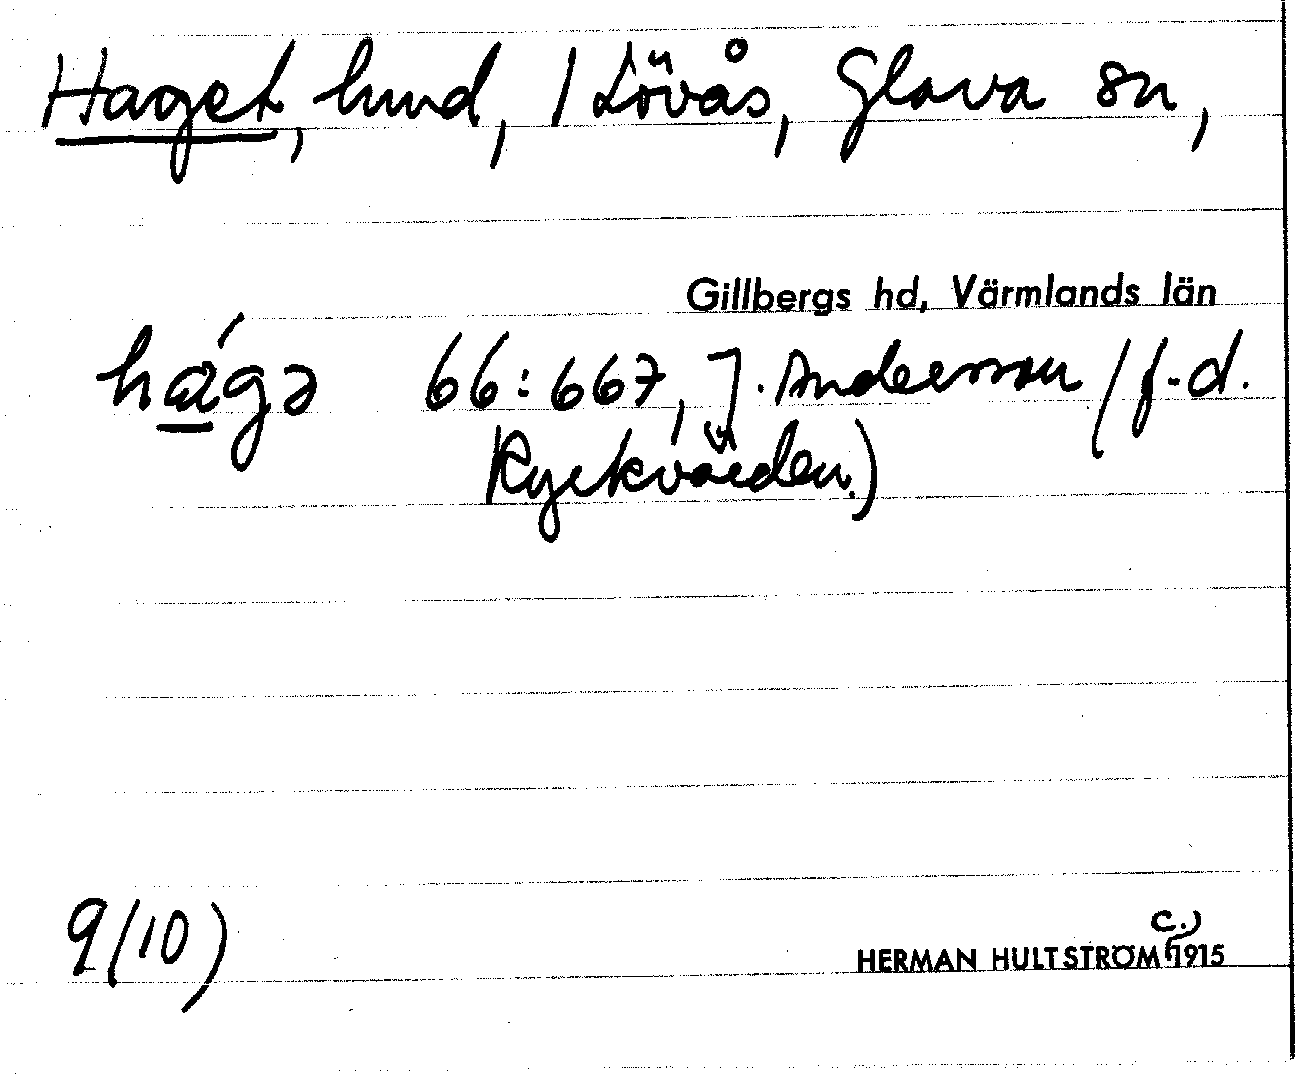 Haget, hmd, 1 Lövås, Glava sn,
Gillbergs hd, Värmlands län
hágə 66:667, J. Andersson (f.d.
Ryckvärden.)
9/10)
c.)
HERMAN HULTSTRÖM 1915